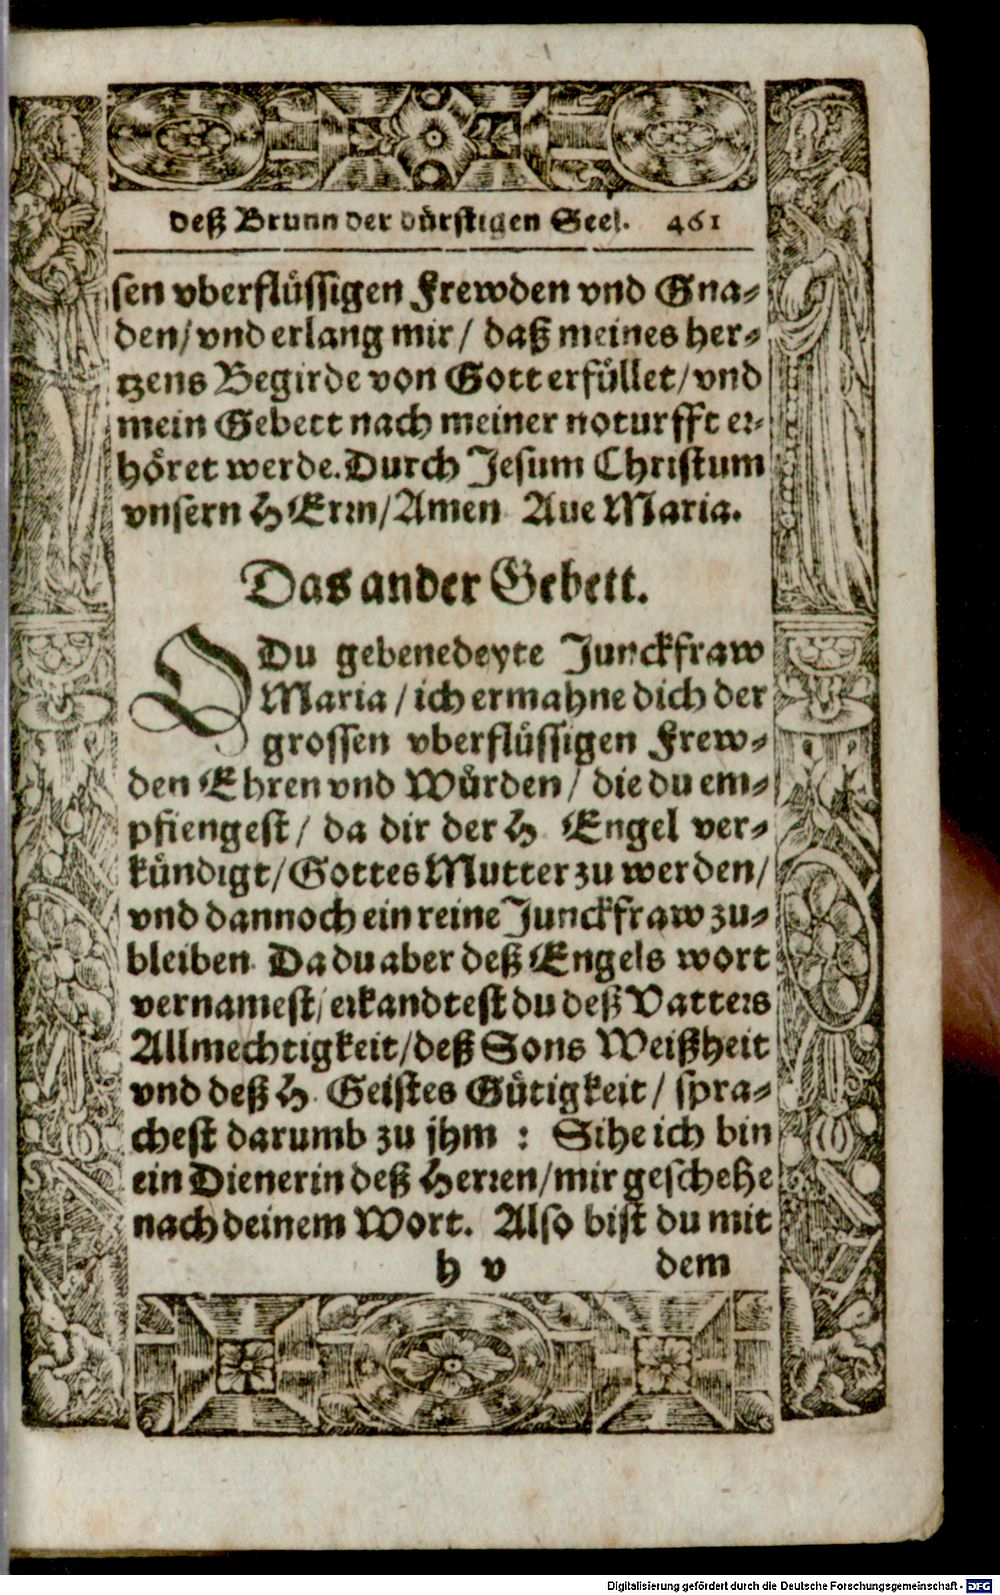 deß Brunn der dürstigen Seel. 461
sen vberflüssigen Frewden vnd Gna-
den/ vnd erlang mir/ daß meines her-
tzens Begirde von Gott erfüllet/ vnd
mein Gebett nach meiner noturfft er-
höret werde. Durch Jesum Christum
vnsern HErrn/ Amen Aue Maria.
Das ander Gebett.
O Du gebenedeyte Junckfraw
Maria / ich ermahne dich der
grossen vberflüssigen Frew-
den Ehren vnd Würden / die du em-
pfiengest / da dir der H. Engel ver-
kündigt/ Gottes Mutter zu werden/
vnd dannoch ein reine Junckfraw zu-
bleiben. Da du aber deß Engels wort
vernamest/ erkandtest du deß Vatters
Allmechtigkeit/ deß Sons Weißheit
vnd deß H. Geistes Gütigkeit / spra-
chest darumb zu jhm : Sihe ich bin
ein Dienerin deß Herren/ mir geschehe
nach deinem Wort. Also bist du mit
h v dem
Digitalisierung gefördert durch die Deutsche Forschungsgemeinschaft - DFG